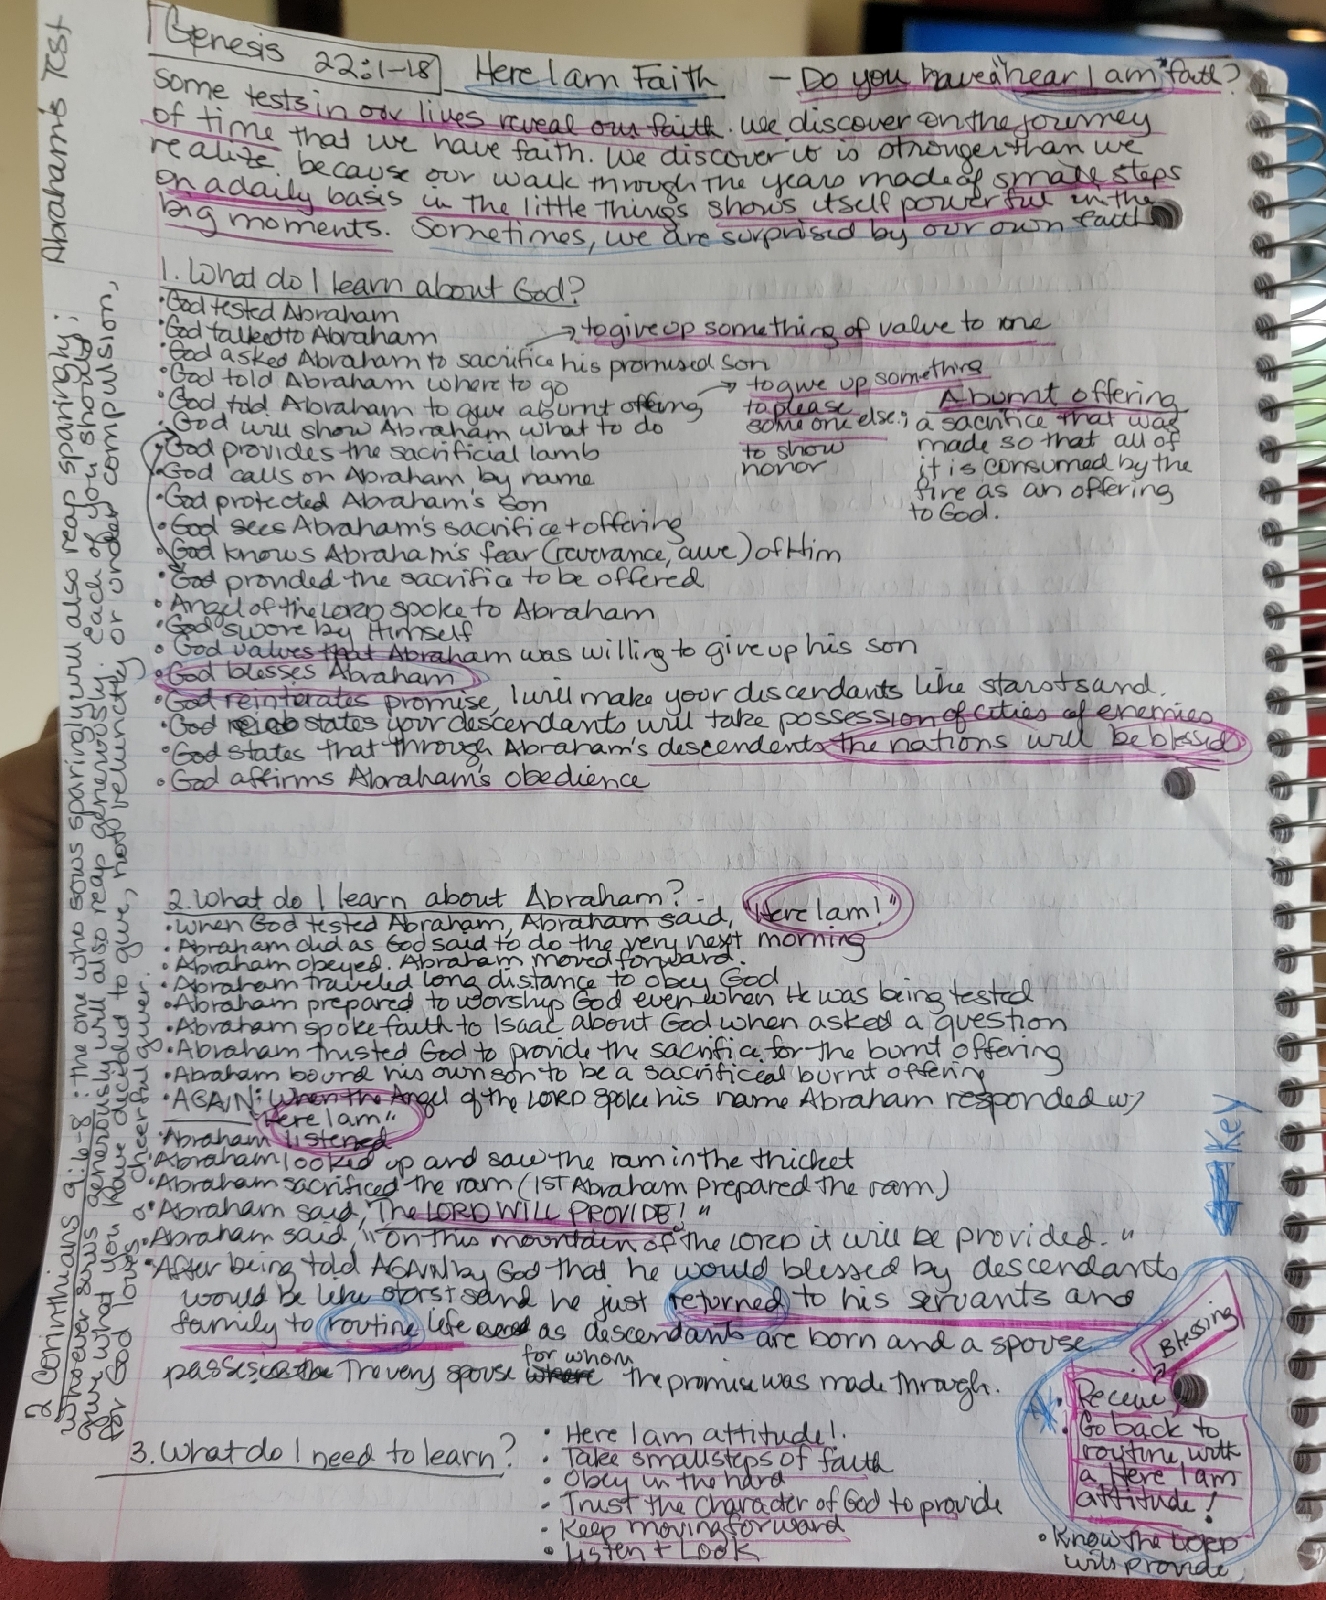 Genesis 22:1-18 Here I am Faith - Do you have a "hear I am" faith?
Some tests in our lives reveal our faith. We discover on the journey
of time that we have faith. We discover it is stronger than we
realize because our walk through the years made of small steps
on a daily basis in the little things shows itself powerful in the
big moments. Sometimes, we are surprised by our own faith
1. What do I learn about God?
• God tested Abraham
• God talked to Abraham
→ to give up something of value to me
• God asked Abraham to sacrifice his promised son
• God told Abraham where to go
• God told Abraham to give a burnt offering
→ to give up something
to please
someone else;
to show
honor
A burnt offering
a sacrifice that was
made so that all of
it is consumed by the
fire as an offering
to God.
• God will show Abraham what to do
• God provides the sacrificial lamb
• God calls on Abraham by name
• God protected Abraham's son
• God sees Abraham's sacrifice + offering
• God knows Abraham's fear (reverance, awe) of Him
• God provided the sacrifice to be offered
• Angel of the LORD spoke to Abraham
• God swore by Himself
• God values that Abraham was willing to give up his son
• God blesses Abraham
• God reinterates promise, I will make your descendants like stars + sand.
• God states your descendants will take possession of cities of enemies
• God states that through Abraham's descendents the nations will be blessed
• God affirms Abraham's obedience
2. What do I learn about Abraham?
• When God tested Abraham, Abraham said, "Here I am!"
• Abraham did as God said to do the very next morning
• Abraham obeyed. Abraham moved forward.
• Abraham traveled long distance to obey God
• Abraham prepared to worship God even when He was being tested
• Abraham spoke faith to Isaac about God when asked a question
• Abraham trusted God to provide the sacrifice for the burnt offering
• Abraham bound his own son to be a sacrificeal burnt offering
• AGAIN: When the Angel of the LORD spoke his name Abraham responded w/
"Here I am"
• Abraham listened
• Abraham looked up and saw the ram in the thicket
• Abraham sacrificed the ram (1ST Abraham prepared the ram)
• Abraham said, "The LORD WILL PROVIDE!"
• Abraham said, "On this mountain of the LORD it will be provided."
• After being told AGAIN by God that he would blessed by descendants
would be like stars + sand he just returned to his servants and
family to routine life as descendants are born and a spouse
passes The very spouse for whom the promise was made through.
3. What do I need to learn?
• Here I am attitude!
• Take small steps of faith
• Obey in the hard
• Trust the character of God to provide
• Keep moving forward
• Listen + Look
Key
Blessing
• Receive
• Go back to
routine with
a Here I am
attitude!
• Know the LORD
will provide
Abraham's Test
2 Corinthians 9:6-8: the one who sows sparingly will also reap sparingly;
whoever sows generously will also reap generously. Each of you should
give what you have decided to give, not reluctantly or under compulsion,
for God loves a cheerful giver.